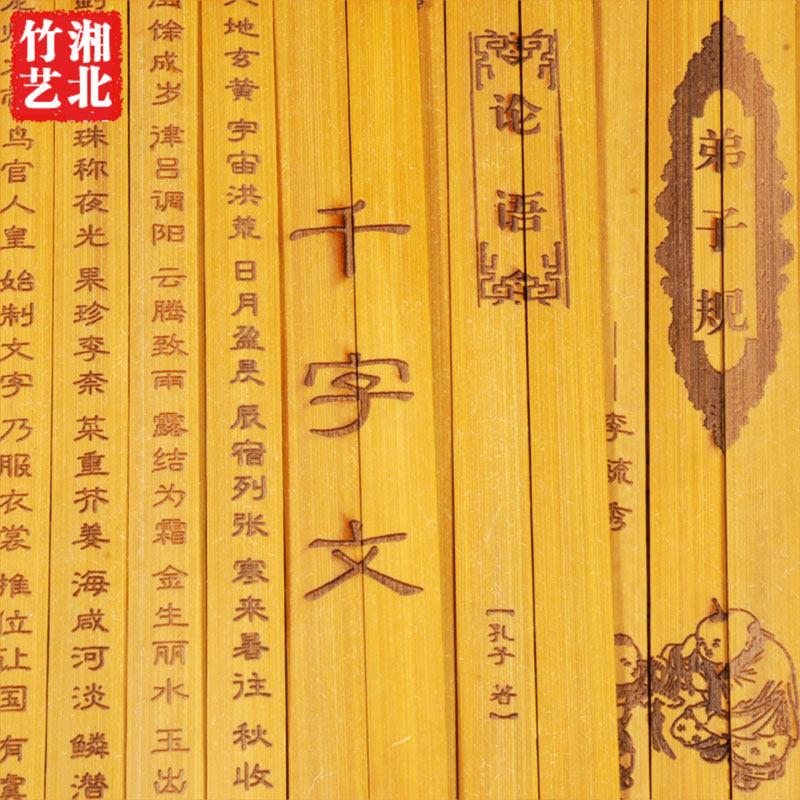 湘北
竹艺
弟子规
李毓秀
论语
[孔子 著]
千字文
地玄黄 宇宙洪荒 日月盈昃 辰宿列张 寒来暑往 秋收
馀成岁 律吕调阳 云腾致雨 露结为霜 金生丽水 玉出
珠称夜光 果珍李奈 菜重芥姜 海咸河淡 鳞潜
鸟官人皇 始制文字 乃服衣裳 推位让国 有虞